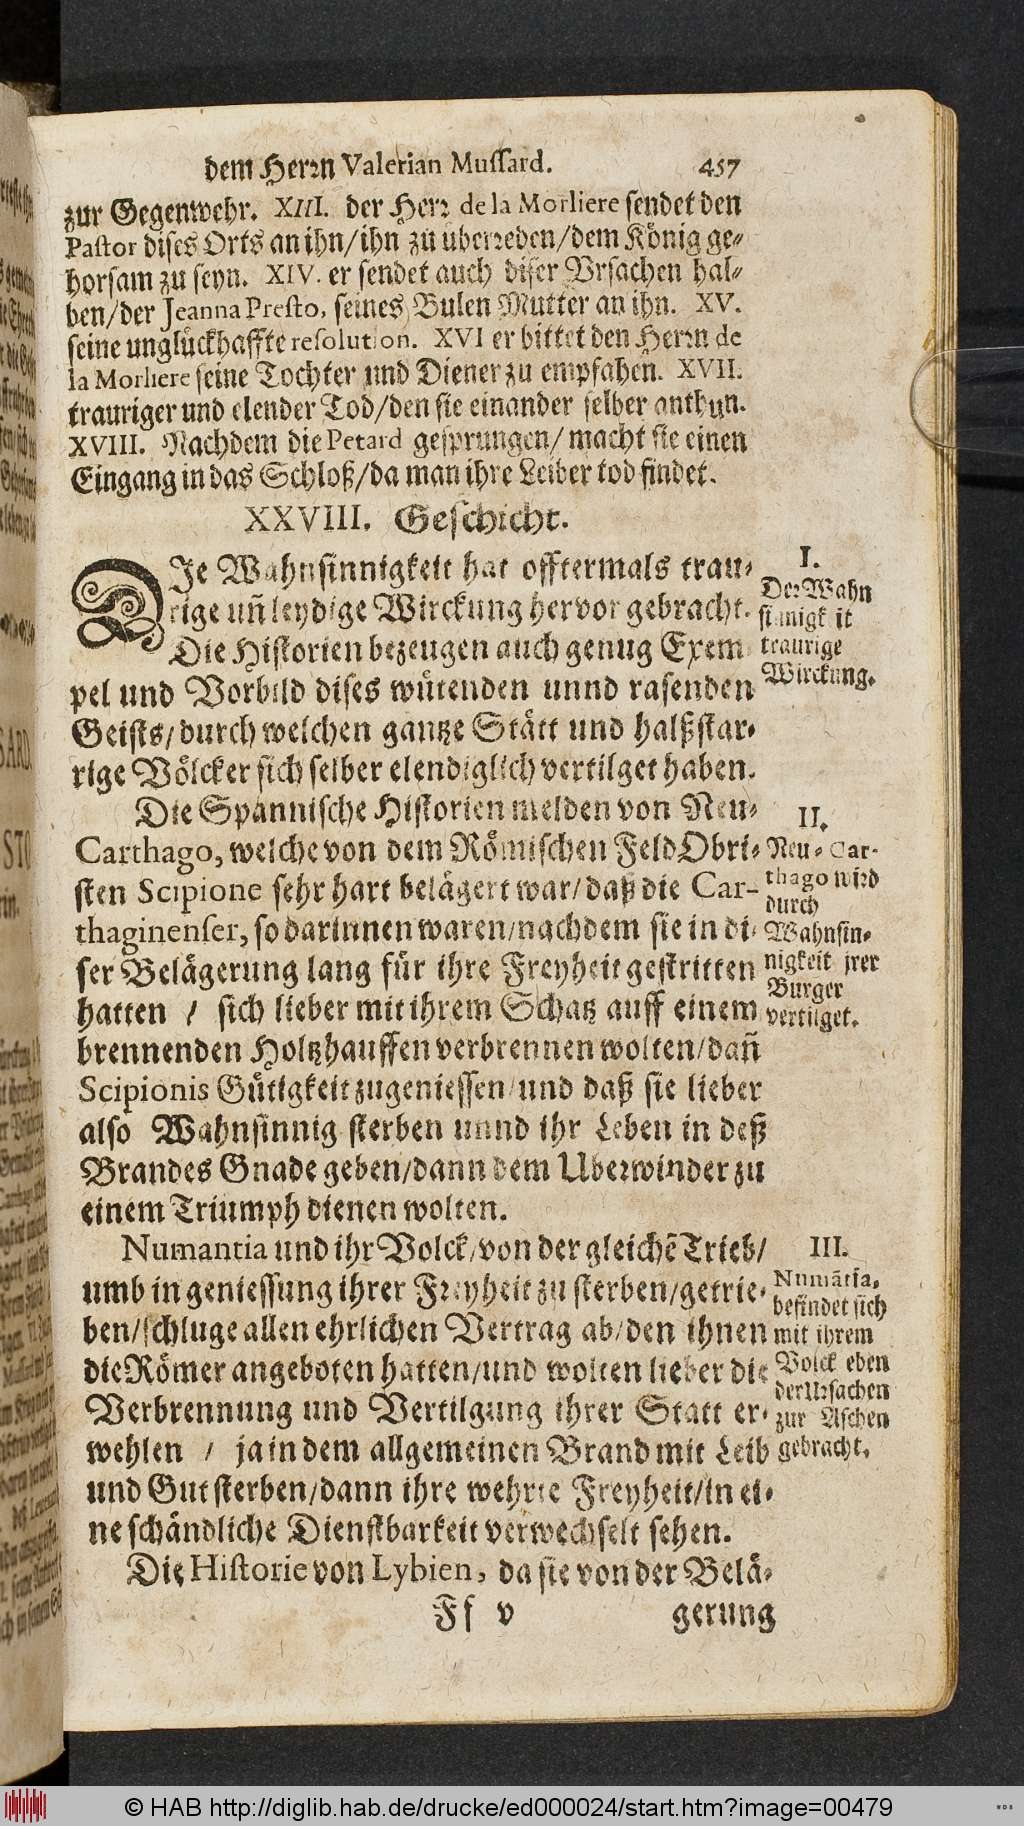 dem Herꝛn Valerian Muſſard. 457
zur Gegenwehr. XIII. der Herꝛ de la Morliere ſendet den
Paſtor diſes Orts an ihn/ihn zu uberꝛeden/dem König ge-
horſam zu ſeyn. XIV. er ſendet auch diſer Vrſachen hal-
ben/der Jeanna Preſto, ſeines Bulen Mutter an ihn. XV.
ſeine unglückhaffte reſolution. XVI er bittet den Herꝛn de
la Morliere ſeine Tochter und Diener zu empfahen. XVII.
trauriger und elender Tod/den ſie einander ſelber anthun.
XVIII. Nachdem die Petard geſprungen/macht ſie einen
Eingang in das Schloß/da man ihre Leiber tod findet.
XXVIII. Geſchicht.
DIe Wahnſinnigkeit hat offtermals trau-
rige uñ leydige Wirckung hervor gebracht.
Die Hiſtorien bezeugen auch genug Exem
pel und Vorbild diſes wütenden unnd raſenden
Geiſts/durch welchen gantze Stätt und halßſtar-
rige Völcker ſich ſelber elendiglich vertilget haben.
I.
Der Wahn
ſinnigkeit
traurige
Wirckung.
Die Spannische Hiſtorien melden von Neu-
Carthago, welche von dem Römiſchen FeldObri-
ſten Scipione ſehr hart belägert war/daß die Car-
thaginenſer, ſo darinnen waren/nachdem ſie in di-
ſer Belägerung lang für ihre Freyheit geſtritten
hatten / ſich lieber mit ihrem Schatz auff einem
brennenden Holtzhauffen verbrennen wolten/dañ
Scipionis Gütigkeit zugenieſſen/und daß ſie lieber
alſo Wahnſinnig ſterben unnd ihr Leben in deß
Brandes Gnade geben/dann dem Uberwinder zu
einem Triumph dienen wolten.
II.
Neu-Car-
thago wird
durch
Wahnſin-
nigkeit jrer
Burger
vertilget.
Numantia und ihr Volck/von der gleichẽ Trieb/
umb in genieſſung ihrer Freyheit zu ſterben/getrie-
ben/ſchluge allen ehrlichen Vertrag ab/den ihnen
die Römer angeboten hatten/und wolten lieber die
Verbrennung und Vertilgung ihrer Statt er-
wehlen / ja in dem allgemeinen Brand mit Leib
und Gut ſterben/dann ihre wehrte Freyheit/in ei-
ne ſchändliche Dienſtbarkeit verwechſelt ſehen.
III.
Numãtia,
befindet ſich
mit ihrem
Volck eben
der Urſachen
zur Aſchen
gebracht.
Die Hiſtorie von Lybien, da ſie von der Belä-
Ff v gerung
© HAB http://diglib.hab.de/drucke/ed000024/start.htm?image=00479